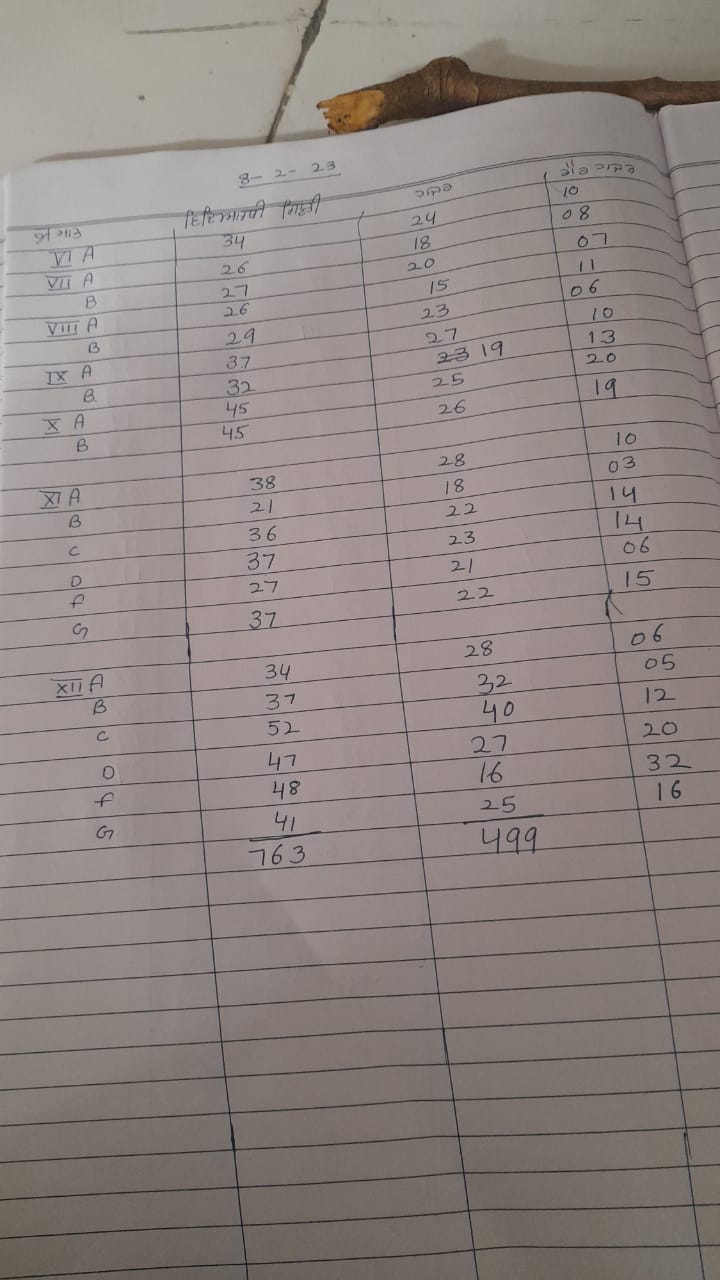 8-2-23
ਵਿਦਿਆਰਥੀ ਗਿਣਤੀ ਹਾਜ਼ਰ ਗੈਰ ਹਾਜ਼ਰ
VI A 34 24 10
VII A 26 18 08
B 27 20 07
VIII A 26 15 11
B 29 23 06
IX A 37 27 10
B 32 23 19 13
X A 45 25 20
B 45 26 19
XI A 38 28 10
B 21 18 03
C 36 22 14
D 37 23 14
F 27 21 06
G 37 22 15
XII A 34 28 06
B 37 32 05
C 52 40 12
D 47 27 20
F 48 16 32
G 41 25 16
763 499